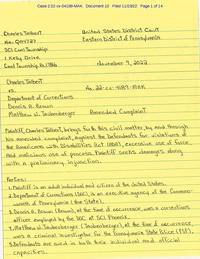 Case 2:22-cv-04189-MAK Document 10 Filed 11/23/22 Page 1 of 14
Charles Talbert United States District Court
No. QP4727 Eastern District of Pennsylvania
SCI Coal Township
1 Kelley Drive
Coal Township, Pa. 17866 November 9, 2022
Charles Talbert
vs. No. 22-cv-4189-MAK
Department of Corrections
Dennis A. Brown
Matthew W. Taubenberger, Amended Complaint
Plaintiff, Charles Talbert, brings forth this civil matter, by and through
his amended complaint, against the defendants for violations of
the Americans with Disabilities Act (ADA), excessive use of force
and malicious use of process. Plaintiff seeks damages along
with a preliminary injunction.
Parties:
1. Plaintiff is an adult individual and citizen of the United States.
2. Department of Corrections (DOC), is an executive agency of the Common-
wealth of Pennsylvania ("the State").
3. Dennis A. Brown (Brown), at the time of occurrence, was a corrections
officer employed by the DOC at SCI Phoenix.
4. Matthew W. Taubenberger (Taubenberger), at the time of occurrence,
was a criminal investigator for the Pennsylvania State Police (PSP).
5. Defendants are sued in both their individual and official
capacities.